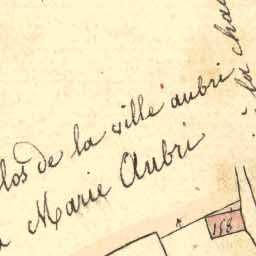 los de la ville aubri
Marie Aubri
la cha
188